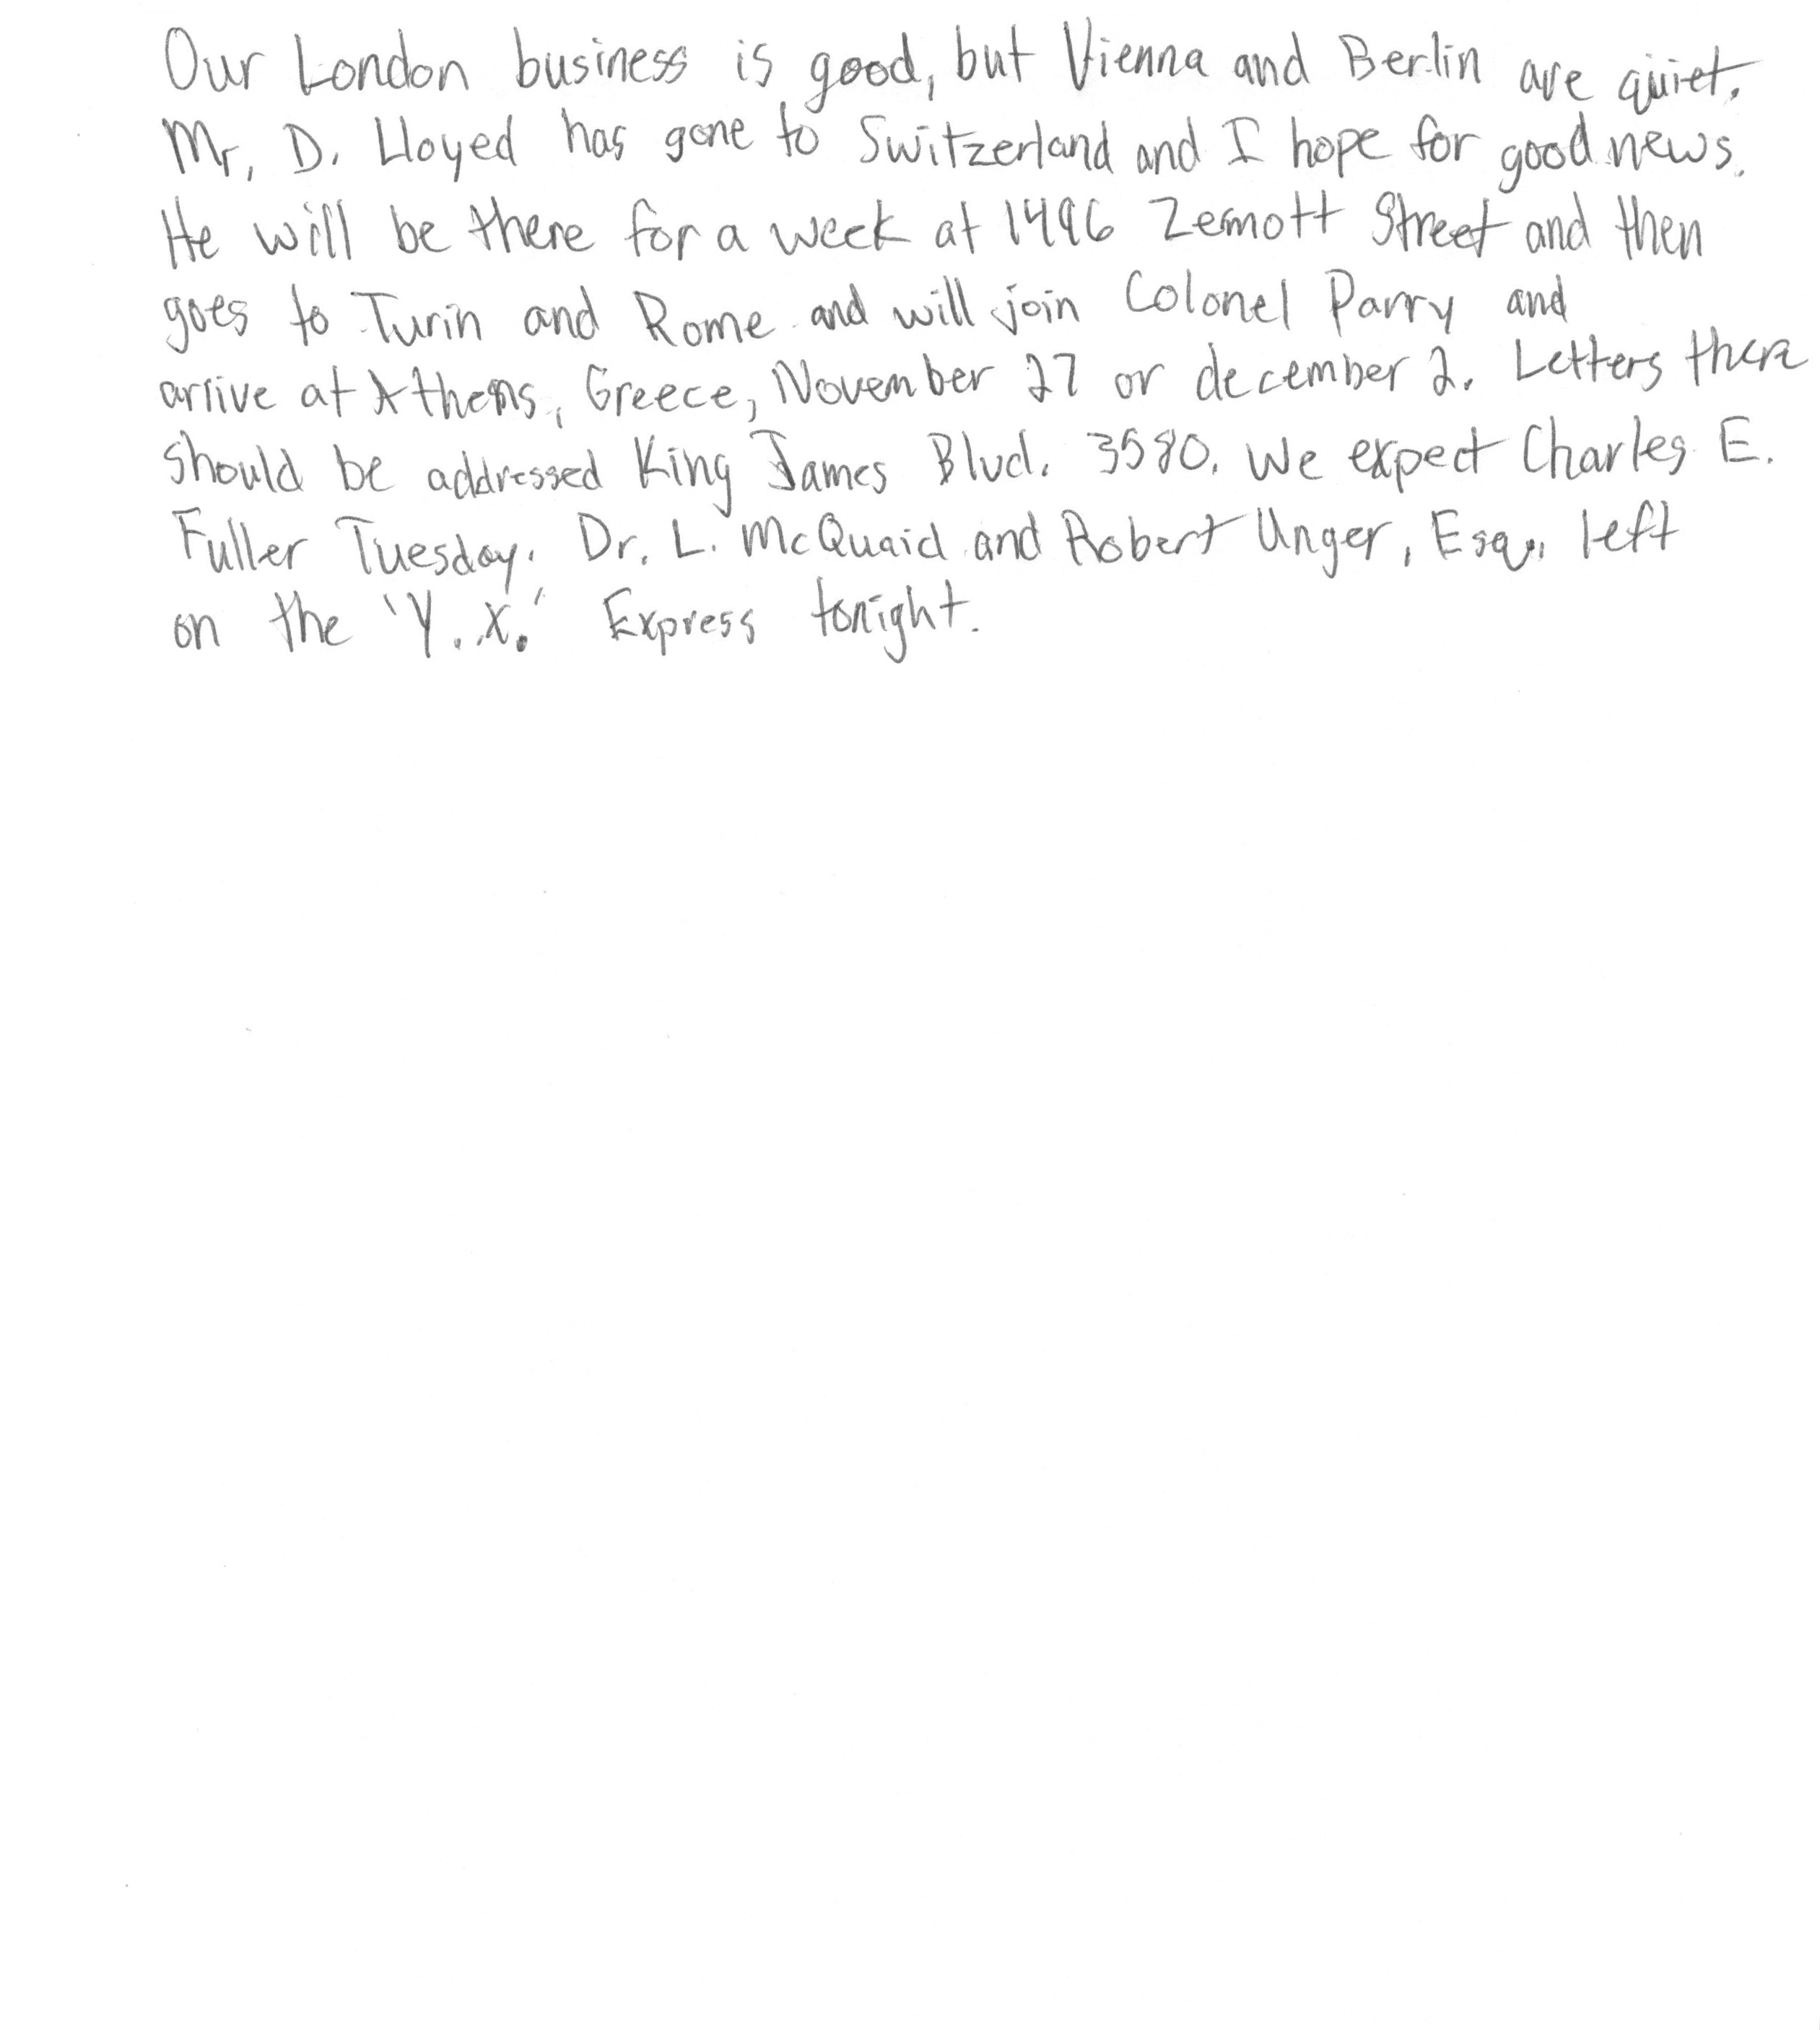 Our London business is good, but Vienna and Berlin are quiet.
Mr. D. Lloyed has gone to Switzerland and I hope for good news.
He will be there for a week at 1496 Zemott Street and then
goes to Turin and Rome and will join Colonel Parry and
arrive at Athens, Greece, November 27 or december 2. Letters there
should be addressed King James Blvd. 3580. We expect Charles E.
Fuller Tuesday. Dr. L. McQuaid and Robert Unger, Esq., left
on the 'Y.X.' Express tonight.